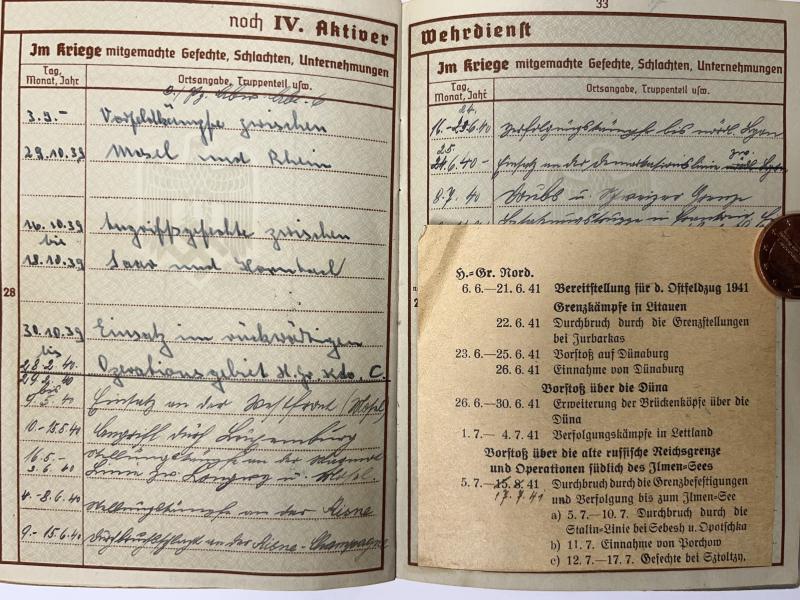 noch IV. Aktiver
Im Kriege mitgemachte Gefechte, Schlachten, Unternehmungen
Tag, Monat, Jahr
Ortsangabe, Truppenteil usw.
3.9.-
Vorfeldkämpfe zwischen
29.10.39
Mosel und Rhein
16.10.39
Angriffsgefechte zwischen
bis
18.10.39
Saar und Hornbach
28
30.10.39
Einsatz im rückwärtigen
bis
28.2.40
Operationsgebiet H.Gr. Kdo. C.
29.2.40
bis
9.5.40
Einsatz an der Westfront (Mosel)
10.-15.5.40
Angriff durch Luxemburg
16.5.-
Stellungskämpfe an der
3.6.40
Linie zw. Longwy u. Mosel.
4.-8.6.40
Stellungskämpfe an der Aisne
9.-15.6.40
Durchbruchschlacht an der Aisne-Champagne
33
Wehrdienst
Im Kriege mitgemachte Gefechte, Schlachten, Unternehmungen
Tag, Monat, Jahr
Ortsangabe, Truppenteil usw.
24.
16.-25.6.40
Verfolgungskämpfe bis nördl. Lyon
25.
24.6.40-
Einsatz an der Demarkationslinie zw. Lyon
8.7.40
Doubs u. Schweizer Grenze
H.=Gr. Nord.
6. 6.—21. 6. 41 Bereitstellung für d. Ostfeldzug 1941
Grenzkämpfe in Litauen
22. 6. 41 Durchbruch durch die Grenzstellungen
bei Jurbarkas
23. 6.—25. 6. 41 Vorstoß auf Dünaburg
26. 6. 41 Einnahme von Dünaburg
Vorstoß über die Düna
26. 6.—30. 6. 41 Erweiterung der Brückenköpfe über die
Düna
1. 7.— 4. 7. 41 Verfolgungskämpfe in Lettland
Vorstoß über die alte russische Reichsgrenze
und Operationen südlich des Ilmen=Sees
5. 7.—15. 8. 41 Durchbruch durch die Grenzbefestigungen
17.7.41 und Verfolgung bis zum Ilmen=See
a) 5. 7.—10. 7. Durchbruch durch die
Stalin=Linie bei Sebesh u. Opotschka
b) 11. 7. Einnahme von Porchow
c) 12. 7.—17. 7. Gefechte bei Sztoltzy,